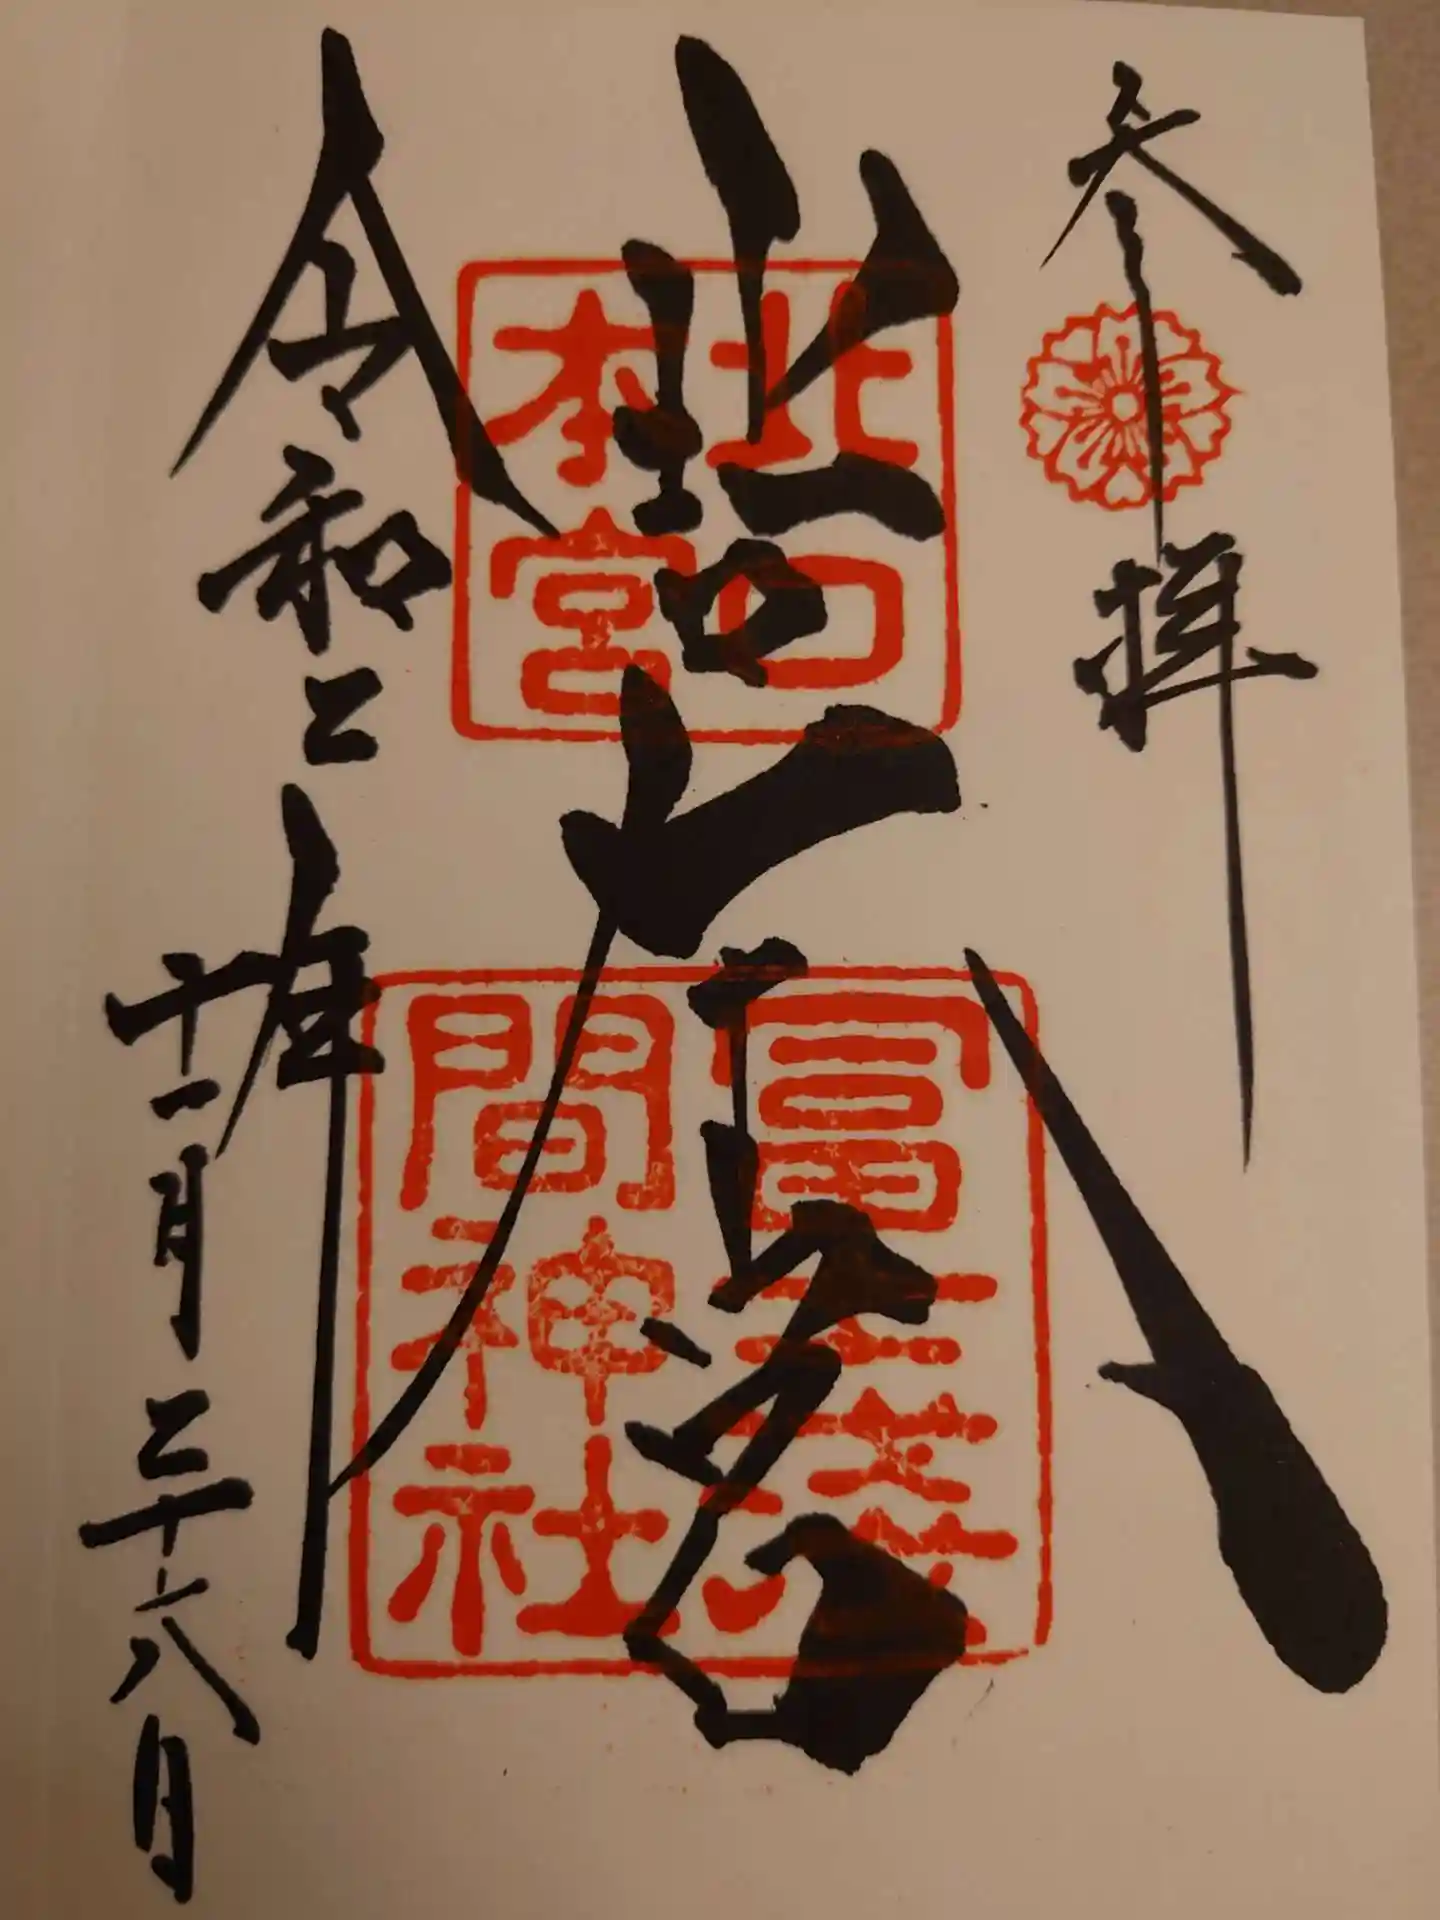 参拝
北口
本宮
冨士淺
間神社
令和二年
十一月二十八日